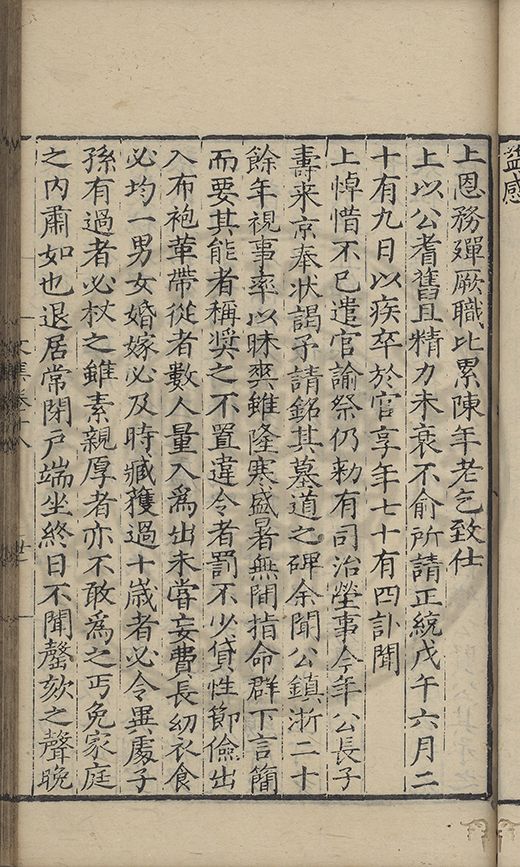 盐感
上恩務殫厥職比累陳年老乞致仕
上以公耆舊且精力未衰不俞所請正統戊午六月二
十有九日以疾卒於官享年七十有四訃聞
上悼惜不已遣官諭祭仍勑有司治塋事今年公長子
壽来京奉狀謁予請銘其墓道之碑余聞公鎮浙二十
餘年視事率以昧爽雖隆寒盛暑無間指命群下言簡
而要其能者稱奨之不置違令者罰不少貸性節儉出
入布袍革帶從者數人量入爲出未嘗妄費長幼衣食
必均一男女婚嫁必及時臧獲過十歳者必令異處子
孫有過者必杖之雖素親厚者亦不敢爲之丐免家庭
之内肅如也退居常閉戶端坐終日不聞謦欬之聲晩
文集卷十八